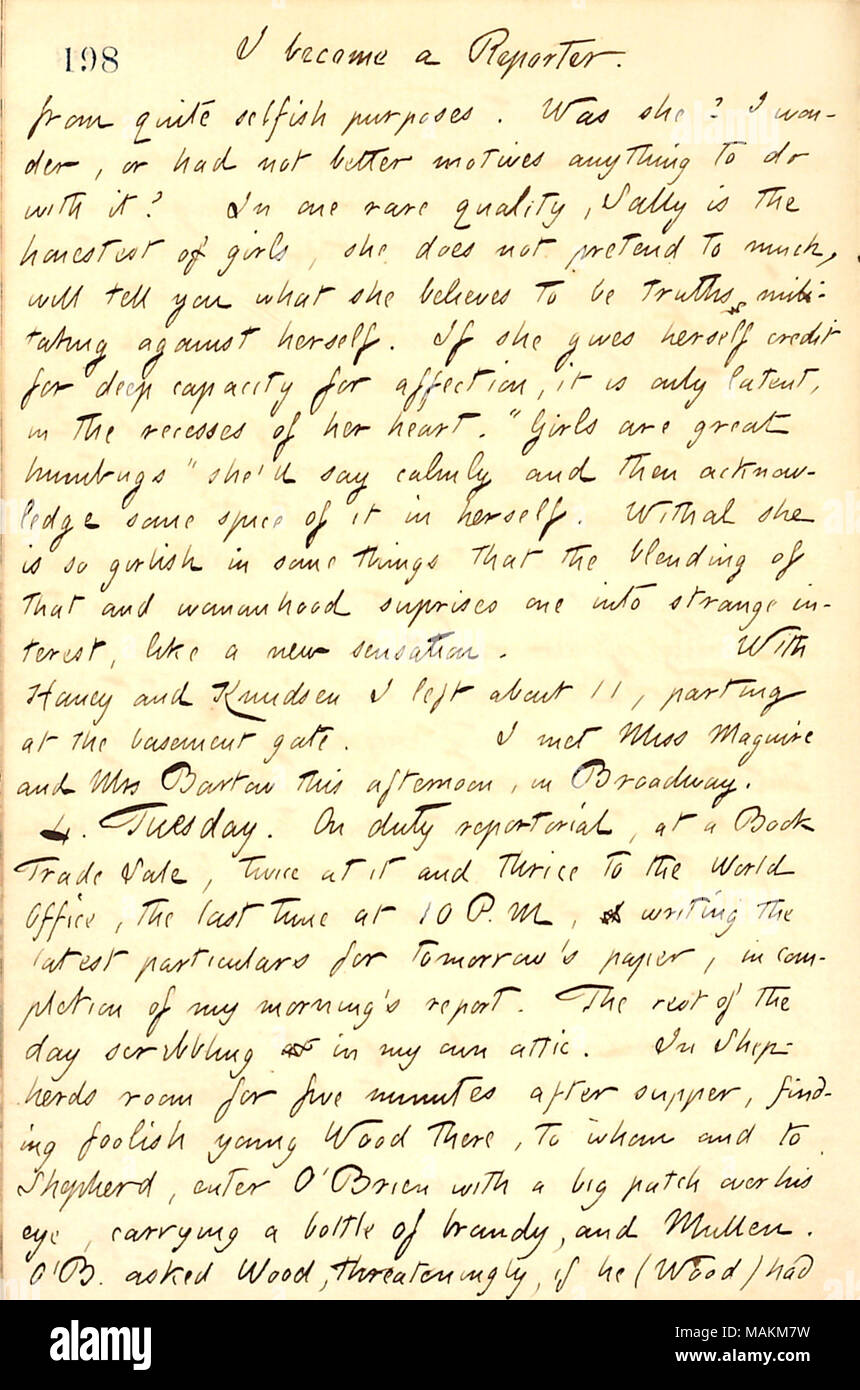 198
I become a Reporter.
from quite selfish purposes. Was she? I won-
der, or had not better motives anything to do
with it? In one rare quality, Sally is the
honestest of girls, she does not pretend to much,
will tell you what she believes to be truths mili-
tating against herself. If she gives herself credit
for deep capacity for affection, it is only latent,
in the recesses of her heart. "Girls are great
humbugs" she'd say calmly and then acknow-
ledge some spice of it in herself. Withal she
is so girlish in some things that the blending of
that and womanhood suprises one into strange in-
terest, like a new sensation. With
Haney and Knudsen I left about 11, parting
at the basement gate. I met Miss Maguire
and Mrs Bartow this afternoon, in Broadway.
4. Tuesday. On duty reportorial, at a Book
Trade Sale, twice at it and thrice to the World
Office, the last time at 10 P.M, writing the
latest particulars for tomorrow's paper, in com-
pletion of my morning's report. The rest of the
day scribbling in my own attic. In Shep-
herds room for five minutes after supper, find-
ing foolish young Wood there, to whom and to
Shepherd, enter O'Brien with a big patch over his
eye, carrying a bottle of brandy, and Mullen.
O'B. asked Wood, threateningly, if he (Wood) had
alamy
Image ID: MAKM7W
www.alamy.com